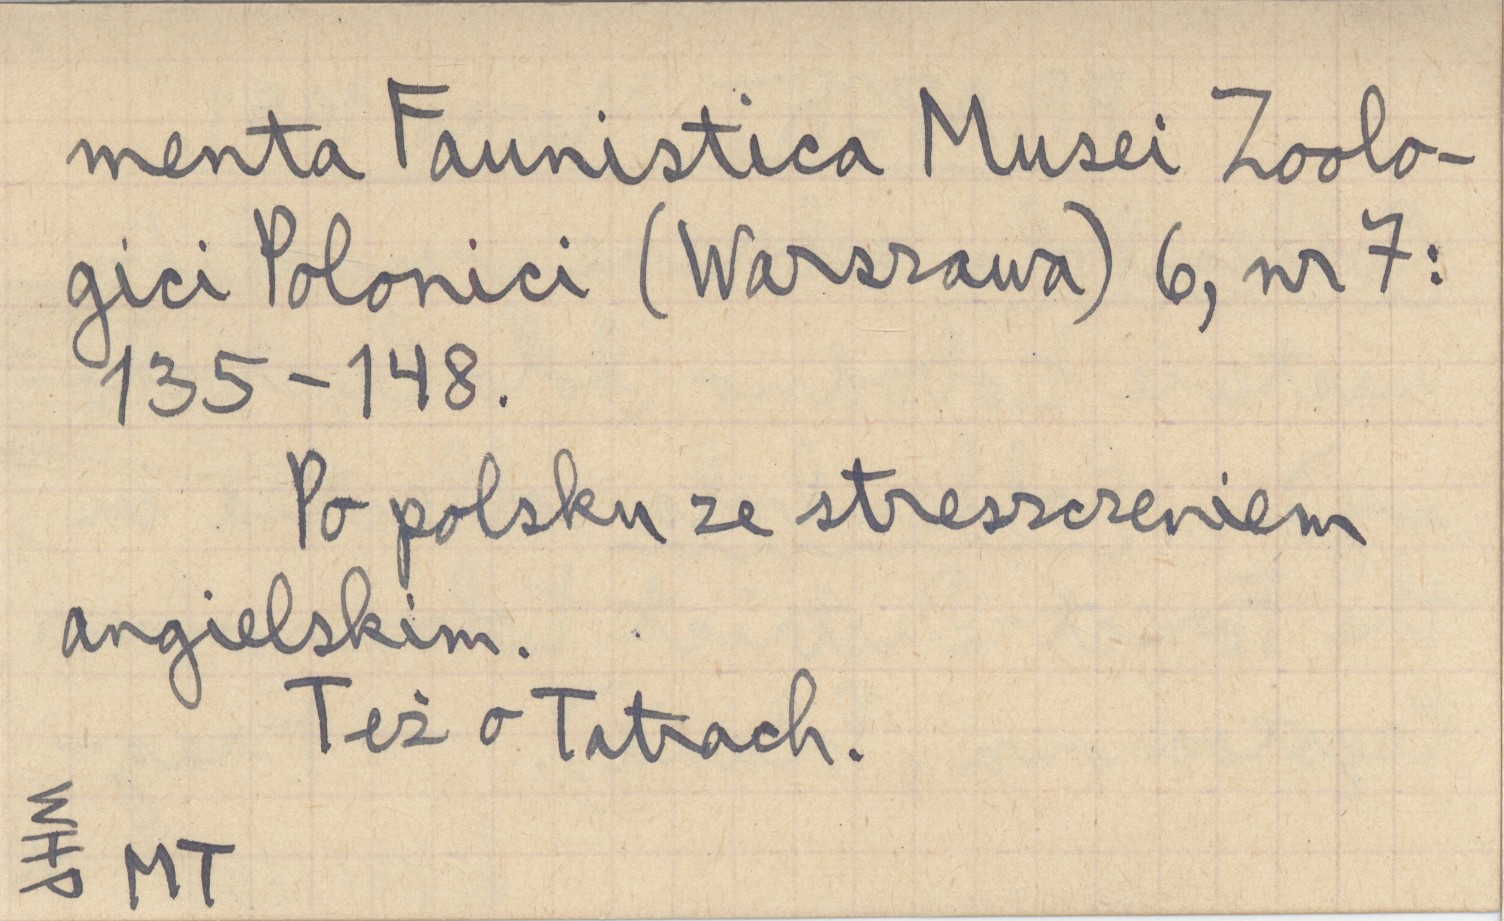 menta Faunistica Musei Zoolo-
gici Polonici (Warszawa) 6, nr 7:
135-148.
Po polsku ze streszczeniem
angielskim.
Też o Tatrach.
WHP
MT